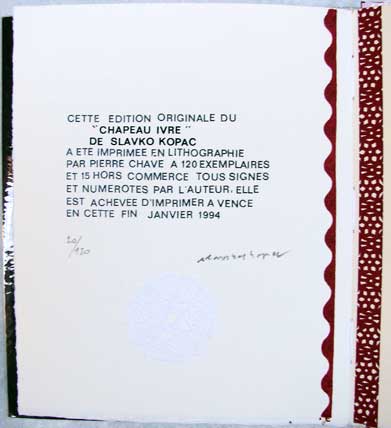 CETTE EDITION ORIGINALE DU
"CHAPEAU IVRE"
DE SLAVKO KOPAC
A ETE IMPRIMEE EN LITHOGRAPHIE
PAR PIERRE CHAVE A 120 EXEMPLAIRES
ET 15 HORS COMMERCE TOUS SIGNES
ET NUMEROTES PAR L'AUTEUR. ELLE
EST ACHEVEE D'IMPRIMER A VENCE
EN CETTE FIN JANVIER 1994
20/
120